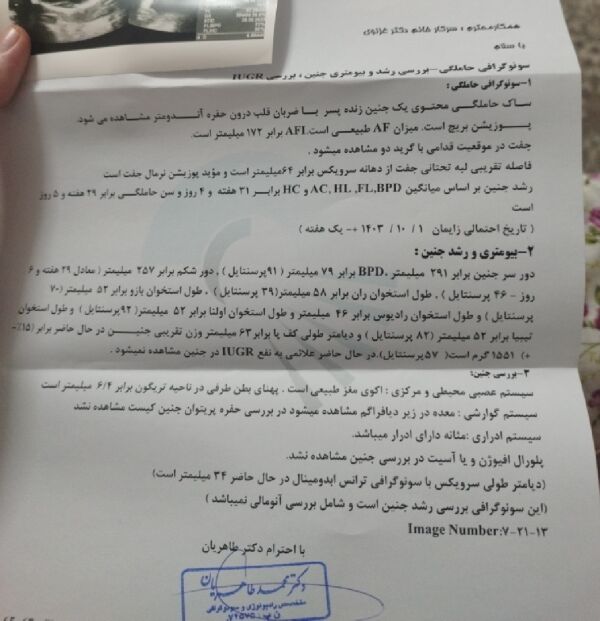 همکار محترم ، سرکار خانم دکتر غزنوی
با سلام
سونوگرافی حاملگی-بررسی رشد و بیومتری جنین ، بررسی IUGR
۱-سونوگرافی حاملگی :
ساک حاملگی محتوی یک جنین زنده پسر با ضربان قلب درون حفره آندومتر مشاهده می شود.
پوزیشن بریچ است. میزان AF طبیعی است.AFI برابر ۱۷۲ میلیمتر است.
جفت در موقعیت قدامی با گرید دو مشاهده میشود .
فاصله تقریبی لبه تحتانی جفت از دهانه سرویکس برابر ۶۴میلیمتر است و مؤید پوزیشن نرمال جفت است
رشد جنین بر اساس میانگین AC, HL ,FL,BPD و HC برابر ۳۱ هفته و ۴ روز و سن حاملگی برابر ۲۹ هفته و ۵ روز
است
( تاریخ احتمالی زایمان ۱ / ۱۰ / ۱۴۰۳ +- یک هفته )
۲-بیومتری و رشد جنین :
دور سر جنین برابر ۲۹۱ میلیمتر ،BPD برابر ۷۹ میلیمتر ( ۹۱پرسنتایل) ، دور شکم برابر ۲۵۷ میلیمتر ( معادل ۲۹ هفته و ۶
روز - ۴۶ پرسنتایل ) ، طول استخوان ران برابر ۵۸ میلیمتر(۳۹ پرسنتایل) ، طول استخوان بازو برابر ۵۲ میلیمتر (۷۰
پرسنتایل ) و طول استخوان رادیوس برابر ۴۶ میلیمتر و طول استخوان اولنا برابر ۵۲ میلیمتر (۹۲پرسنتایل ) و طول استخوان
تیبیا برابر ۵۲ میلیمتر (۸۲ پرسنتایل ) و دیامتر طولی کف پا برابر۶۳ میلیمتر وزن تقریبی جنین در حال حاضر برابر (۱۵٪-
+) ۱۵۵۱ گرم است( ۵۷پرسنتایل).در حال حاضر علائمی به نفع IUGR در جنین مشاهده نمیشود .
۳-بررسی جنین:
سیستم عصبی محیطی و مرکزی : اکوی مغز طبیعی است . پهنای بطن طرفی در ناحیه تریگون برابر ۶/۴ میلیمتر است
سیستم گوارشی : معده در زیر دیافراگم مشاهده میشود در بررسی حفره پریتوان جنین کیست مشاهده نشد
سیستم ادراری :مثانه دارای ادرار میباشد.
پلورال افیوژن و یا آسیت در بررسی جنین مشاهده نشد.
(دیامتر طولی سرویکس با سونوگرافی ترانس ابدومینال در حال حاضر ۳۴ میلیمتر است)
(این سونوگرافی بررسی رشد جنین است و شامل بررسی آنومالی نمیباشد )
Image Number:۷-۲۱-۱۳
با احترام دکتر طاهریان
دکتر محمد طاهریان
متخصص رادیولوژی و سونوگرافی